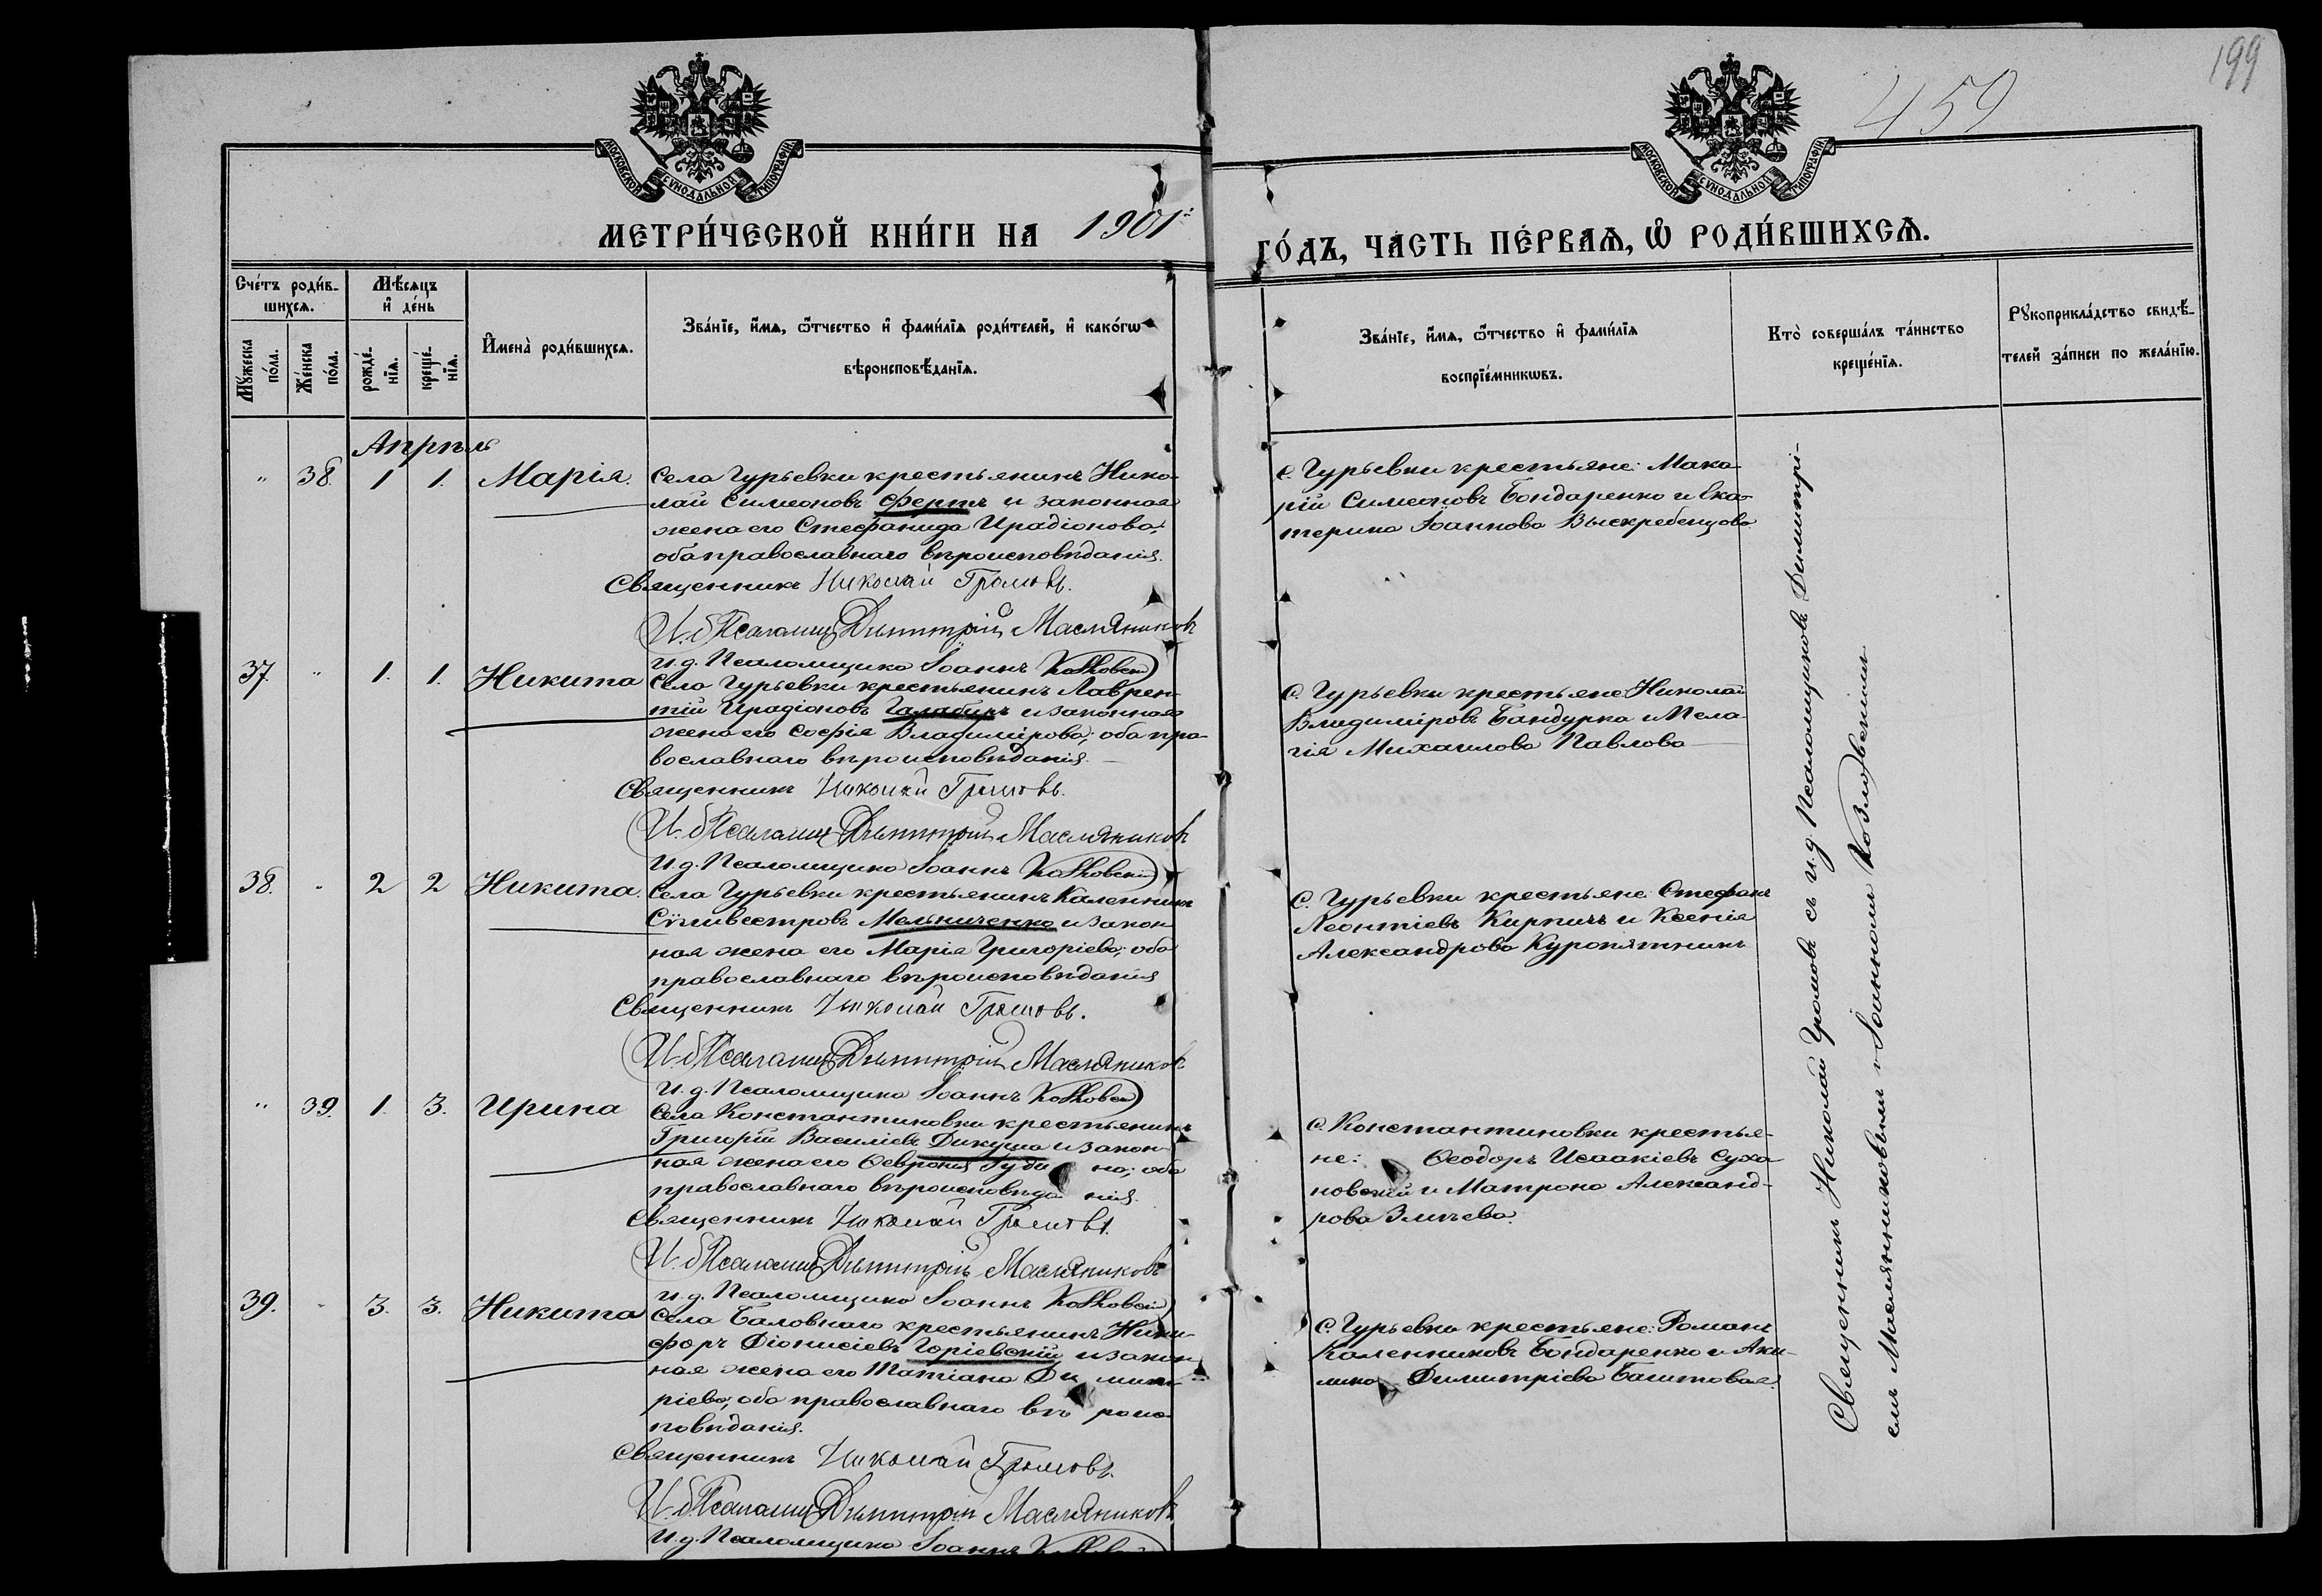 199
459
МОСКОВСКОЙ СѴНОДАЛЬНОЙ ТИПОГРАФІИ
МОСКОВСКОЙ СѴНОДАЛЬНОЙ ТИПОГРАФІИ
МЕТРИ́ЧЕСКОЙ КНИ́ГИ НА 1901й
ГО́ДЪ, ЧА́СТЬ ПЕ́РВАѦ, Ѽ РОДИ́ВШИХСѦ.
Сче́тъ роди́в-
шихсѧ.
Мꙋ́жеска
по́ла.
Же́нска
по́ла.
Мѣ́сѧцъ
и҆ де́нь
рожде́-
нїѧ.
креще́-
нїѧ.
И҆мена̀ роди́вшихсѧ.
Зва́нїе, и҆́мѧ, ѻ҆́тчество и҆ фами́лїѧ роди́телей, и҆ како́гѡ
вѣроисповѣ́данїѧ.
Зва́нїе, и҆́мѧ, ѻ҆́тчество и҆ фами́лїѧ
воспрїе́мникѡвъ.
Кто̀ соверша́лъ та́инство
креще́нїѧ.
Рꙋкоприкла́дство свидѣ́-
телей за́писи по жела́нїю.
Апрѣль
" 38. 1 1. Марія.
Села Гурьевки крестьянинъ Нико-
лай Симеоновъ Фертъ и законная
жена его Стефанида Ирадіонова;
оба православнаго вѣроисповѣданія.
Священникъ Николай Громовъ.
И. д. Псаломщ. Димитрій Масляниковъ
И. д. Псаломщика Іоаннъ
С. Гурьевки крестьяне: Мака-
рій Симеоновъ Бондаренко и Ека-
терина Іоаннова Выскребенцова
37. " 1. 1. Никита
Села Гурьевки крестьянинъ Лаврен-
тій Ирадіоновъ Галабиръ и законная
жена его Софія Владимірова; оба пра-
вославнаго вѣроисповѣданія.
Священникъ Николай Громовъ.
И. д. Псаломщ. Димитрій Масляниковъ
И. д. Псаломщика Іоаннъ
С. Гурьевки крестьяне Николай
Владиміровъ Бандурка и Пела-
гія Михаилова Павлова
38. " 2 2 Никита.
Села Гурьевки крестьянинъ Каленникъ
Сѵливестровъ Мельниченко и закон-
ная жена его Марія Григоріева; оба
православнаго вѣроисповѣданія
Священникъ Николай Громовъ.
И. д. Псаломщ. Димитрій Масляниковъ
И. д. Псаломщика Іоаннъ
С. Гурьевки крестьяне: Стефанъ
Леонтіевъ Кирпичъ и Ксенія
Александрова Куропятникъ
" 39. 1. 3. Ирина
Села Константиновки крестьянинъ
Григорій Василіевъ Дикуша и закон-
ная жена его Ѳевронія на; оба
православнаго вѣроисповѣданія.
Священникъ Николай Громовъ.
И. д. Псаломщ. Димитрій Масляниковъ
И. д. Псаломщика Іоаннъ
С. Константиновки крестья-
не: Ѳеодоръ Исаакіевъ Суха-
новскій и Матрона Александ-
рова
39. " 3. 3. Никита
Села Баловнаго крестьянинъ Ники-
форъ Діонисіевъ Горіевскій и закон-
ная жена его Татіана Димит-
ріева; оба православнаго вѣроис-
повѣданія.
Священникъ Николай Громовъ.
И. д. Псаломщ. Димитрій Масляниковъ
И. д. Псаломщика Іоаннъ
С. Гурьевки крестьяне: Романъ
Каленниковъ Бондаренко и Аки-
лина Димитріева Баштовая.
Священникъ Николай Громовъ съ и. д. Псаломщиковъ Димитрі-
емъ Масляниковымъ и Іоанномъ